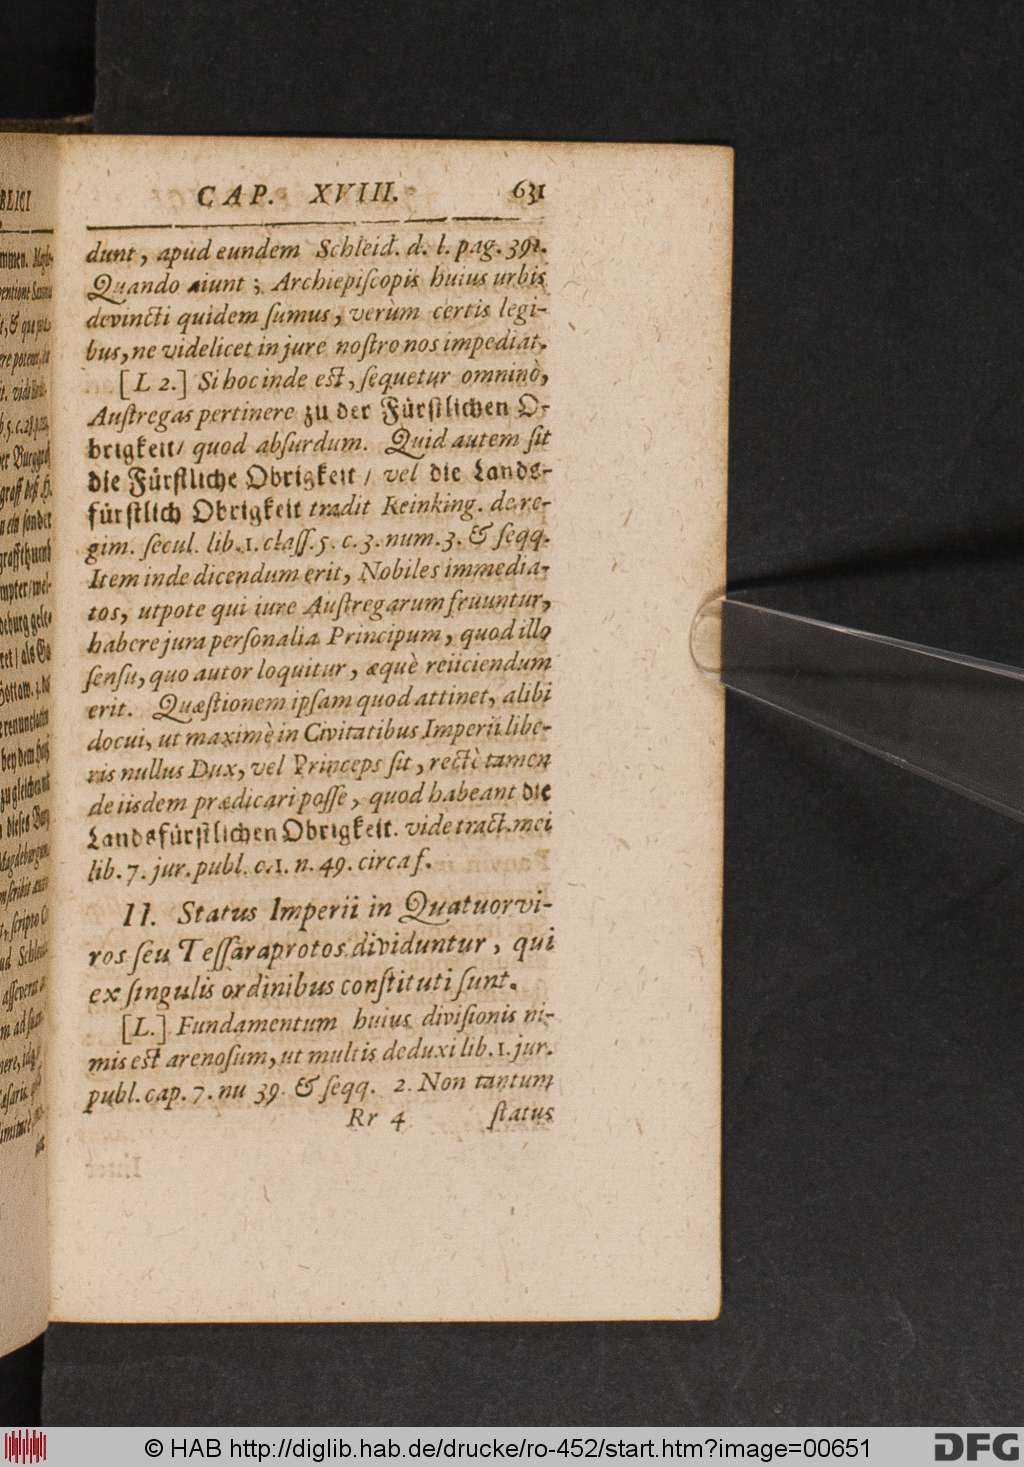 CAP. XVIII. 631
dunt, apud eundem Schleid. d. l. pag. 391.
Quando aiunt; Archiepiſcopis huius urbis
devincti quidem ſumus, verùm certis legi-
bus, ne videlicet in jure noſtro nos impediat.
[L 2.] Si hoc inde eſt, ſequetur omninò,
Auſtregas pertinere zu der Fürſtlichen O-
brigkeit/ quod abſurdum. Quid autem ſit
die Fürſtliche Obrigkeit / vel die Lands-
fürſtlich Obrigkeit tradit Reinking. de re-
gim. ſecul. lib. 1. claſſ. 5. c. 3. num. 3. & ſeqq.
Item inde dicendum erit, Nobiles immedia-
tos, utpote qui iure Auſtregarum fruuntur,
habere jura perſonalia Principum, quod illo
ſenſu, quo autor loquitur, æquè reiiciendum
erit. Quæſtionem ipſam quod attinet, alibi
docui, ut maximè in Civitatibus Imperii libe-
ris nullus Dux, vel Princeps ſit, rectè tamen
de iisdem prædicari poſſe, quod habeant die
Landsfürſtlichen Obrigkeit. vide tract. mei
lib. 7. jur. publ. c. 1. n. 49. circa f.
II. Status Imperii in Quatuorvi-
ros ſeu Teſſaraprotos dividuntur, qui
ex ſingulis ordinibus conſtituti ſunt.
[L.] Fundamentum huius diviſionis ni-
mis eſt arenoſum, ut multis deduxi lib. 1. jur.
publ. cap. 7. nu 39. & ſeqq. 2. Non tantum
Rr 4 ſtatus
© HAB http://diglib.hab.de/drucke/ro-452/start.htm?image=00651
DFG